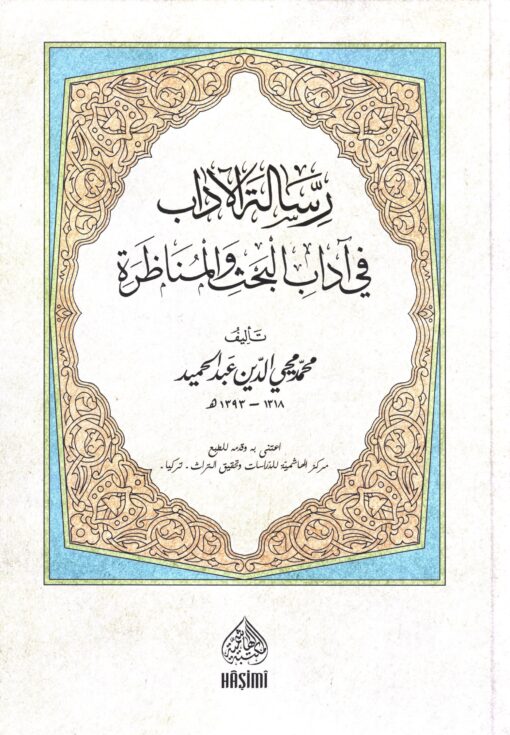 رِسَالَةُ الآدَاب
في آدَابِ البَحْثِ وَالمُنَاظَرَة
تَأليفُ
محمّد محيي الدّين عَبد الحميد
١٣١٨ – ١٣٩٣ هـ
اعتنى به وقدمه للطبع
مركز الهاشمية للدراسات وتحقيق التراث - تركيا -
مكتبة الهاشمية
HÂŞİMÎ